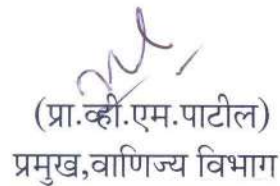 (प्रा.व्ही.एम.पाटील)
प्रमुख,वाणिज्य विभाग